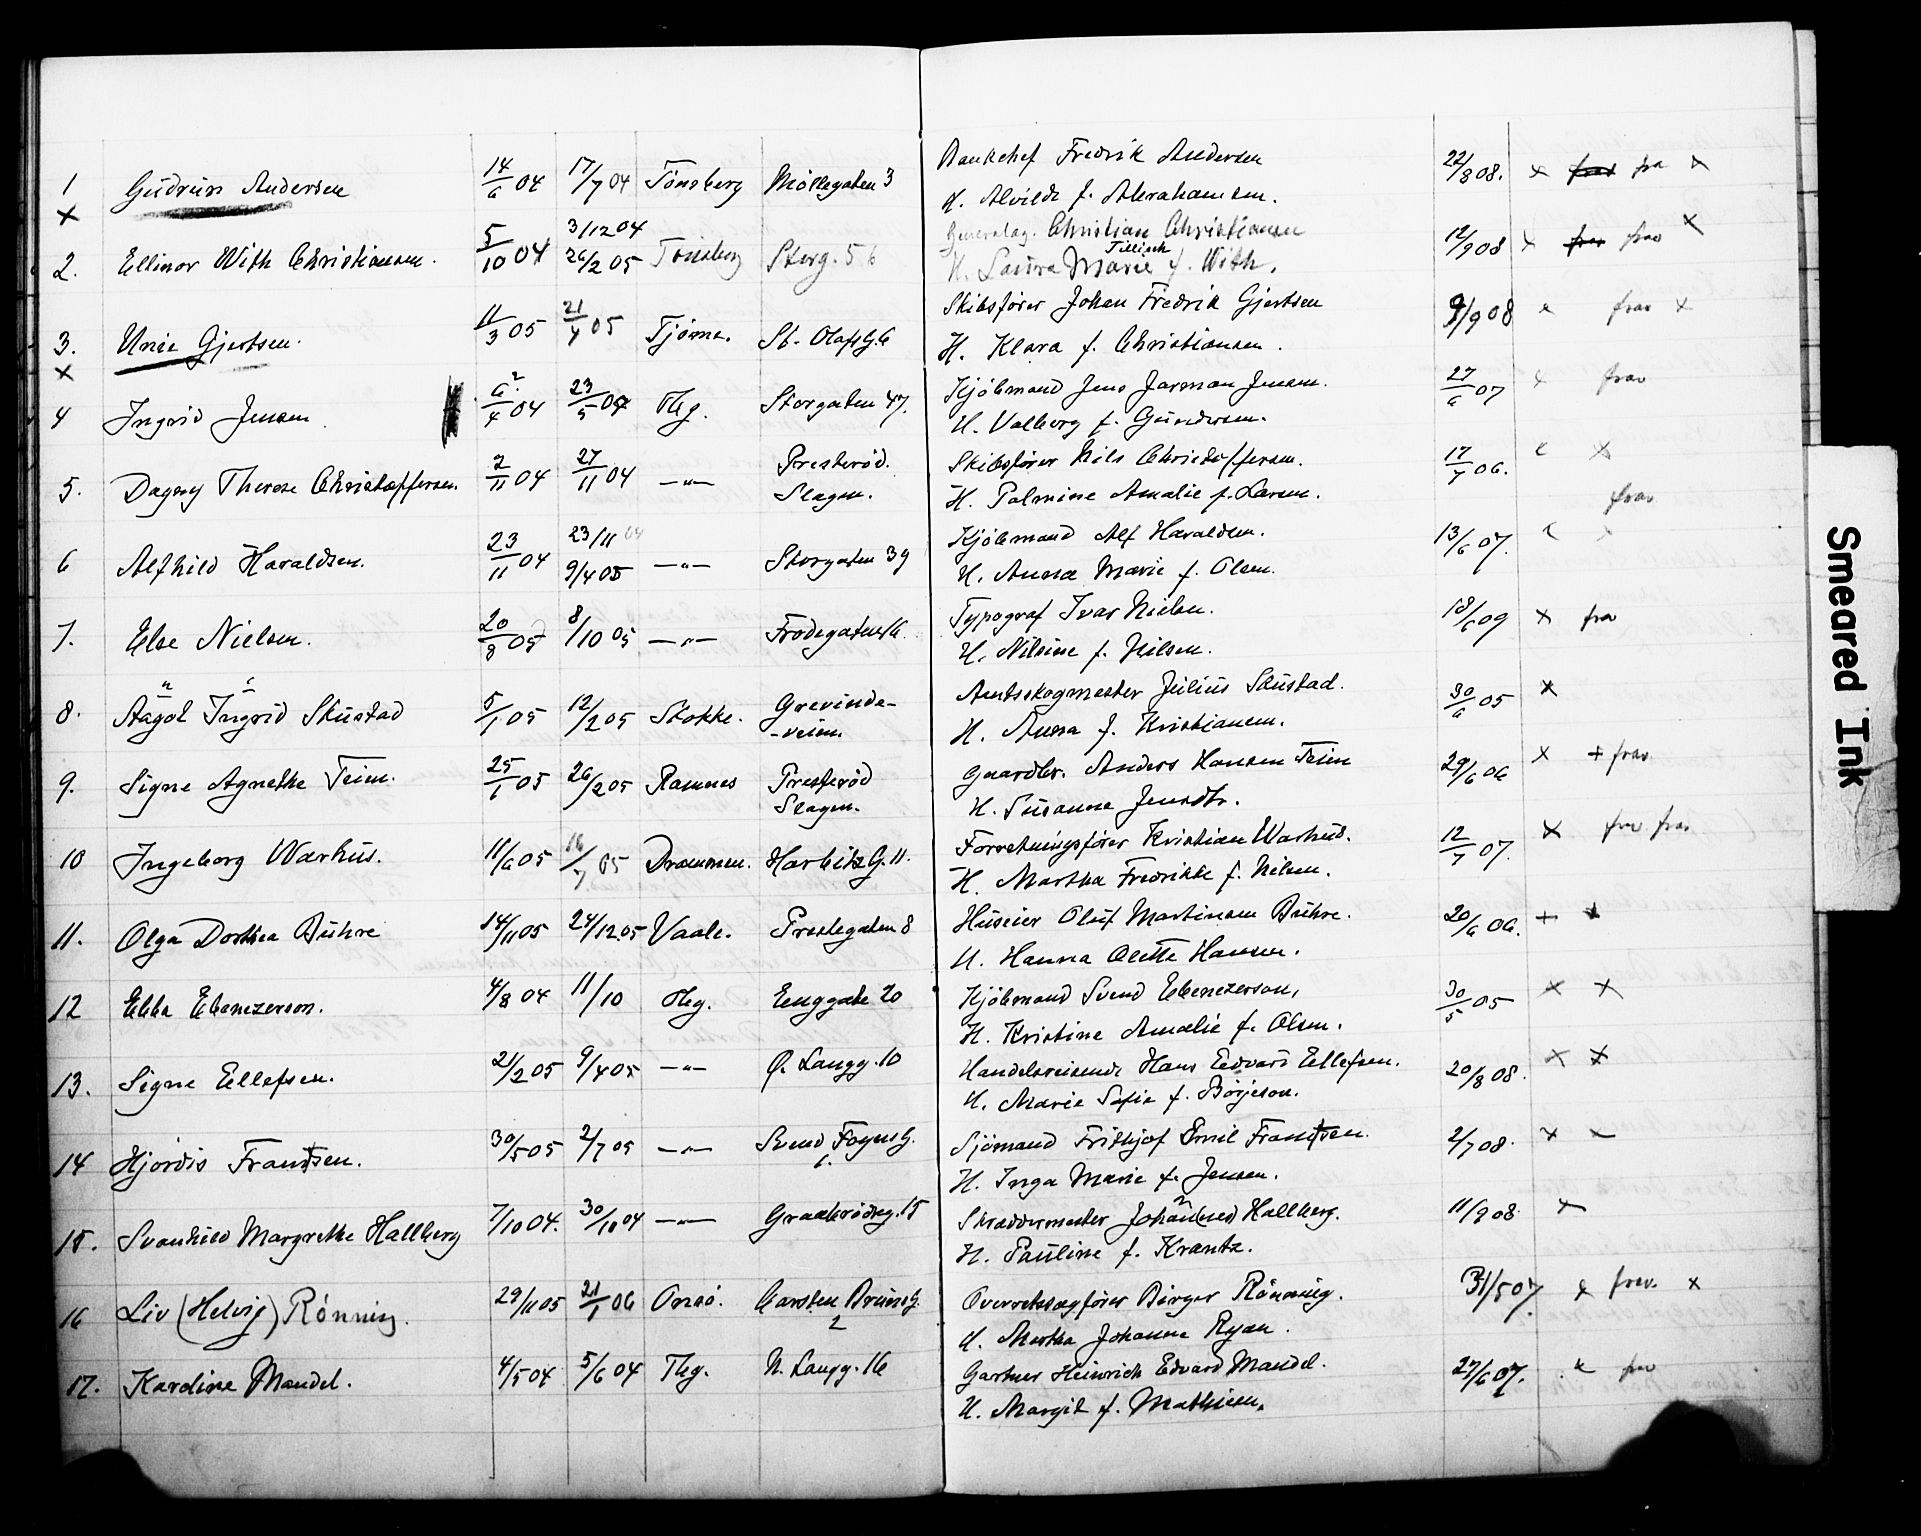 1 Gudrun Andersen 14/6 04 17/7 04 Tönsberg Möllegaten 3 Bankchef Fredrik Andersen 22/8 08. x fra x
x H. Alvilde f. Abrahamsen.
2. Ellinor With Christiansen. 5/10 04 3/12 04 26/2 05 Tönsberg Storg. 56 Christian Christiansen 12/9 08 x frav x
H. Laura Marie Tillisch f. With.
3. Unie Gjertsen. 11/3 05 21/4 05 Tjöme. St. Olafs G. 6 Skibsfører Johan Fredrik Gjertsen 9/9 08 x frav x
x H. Klara f. Christiansen.
4 Ingrid Jensen 6?/4 04 23/5 04 Tbg. Storgaten 47. Kjöbmand Jens Jarman Jensen. 27/6 07 x frav
H. Valborg f. Gundersen.
5. Dagny Therese Christoffersen. 2/11 04 27/11 04 —"— Presterød. Slagen. Skibsfører Nils Christoffersen. 17/7 06. x x
H. Palmine Amalie f. Larsen. frav
6 Alfhild Haraldsen. 23/11 04 23/11 04 9/4 05 —"— Storgaten 39 Kjöbmand Alf Haraldsen. 13/6 07. x x
H. Anna Marie f. Olsen.
7. Else Nielsen. 20/8 05 8/10 05 —"— Frodegaten 16. Typograf Ivar Nielsen. 18/6 09 x fra
H. Nilsine f. Nilsen.
8. Aagot Ingrid Skustad 5/1 05 12/2 05 Stokke. Grevinde-veien. Amtsskogmester Julius Skustad. 30/6 05 x
H. Anna f. Kristiansen.
9. Signe Agnethe Teien. 25/1 05 26/2 05 Ramnes Presterød Slagen. Gaardbr. Anders Hansen Teien 29/6 06 x + frav
H. Susanne Jensdtr.
10 Ingeborg Warhus. 11/6 05 16/7 05 Drammen. Harbitz G. 11. Forretningsfører Kristian Warhus. 12/7 07. x frav frav
H. Martha Fredrikke f. Nilsen.
11. Olga Dorthea Buhre 14/11 05 24/12 05 Vaale. Prestegaten 8 Huseier Oluf Martinsen Buhre. 20/6 06. + x
H. Hanna Olette Hansen.
12 Ebba Ebenezerson. 4/8 04 11/10 Tbg. Enggate 20 Kjöbmand Svend Ebenezerson, 30/5 05 x x
H. Kristine Amalie f. Olsen.
13. Signe Ellefsen. 21/2 05 9/4 05 —"— Ø. Langg. 10 Handelsreisende Hans Edvard Ellefsen. 20/8 08. x x
H. Marie Sofie f. Börjeson.
14 Hjördis Frantsen. 30/5 05 2/7 05 —"— Svend Foyns G. 6. Sjömand Frithjof Emil Frantsen. 2/7 08. x –
H. Inga Marie f. Jensen.
15. Svanhild Margrethe Hallberg 7/10 04. 30/10 04 —"— Graabrødreg. 15 Skraddermester Johan(nes) Hallberg. 11/9 08. x
H. Pauline f. Krantz.
16 Liv (Helvig) Rönning. 29/11 05 21/1 06 Onsö. Carsten Bruns G. 2 Overretssagfører Birger Rönning. 31/5 07. x frav. x
H. Martha Johanne Ryan.
17. Karoline Mandel. 4/5 04 5/6 04 Tbg. N. Langg. 16 Gartner Heinrich Edvard Mandel. 27/6 07. x frav
H. Margit f. Mathisen.
Smeared Ink